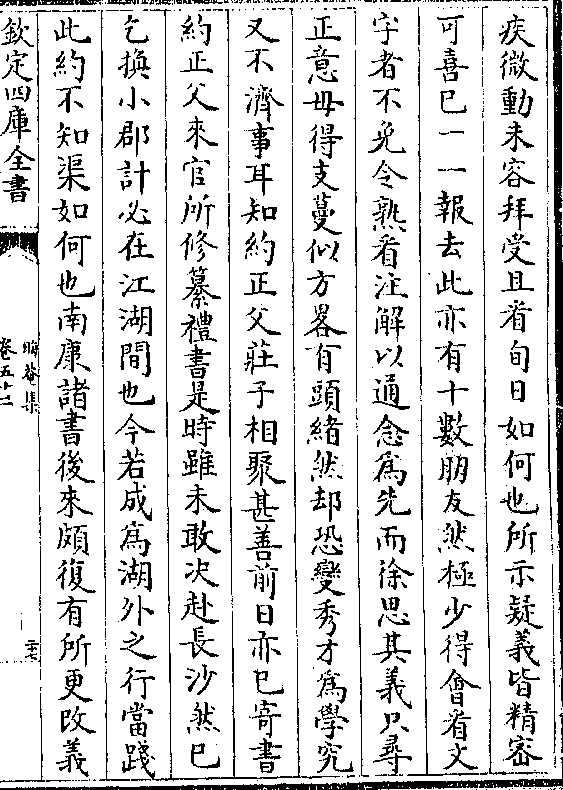 疾微動未容拜受且㸔旬日如何也所示疑義皆精宻
可喜已一一報去此亦有十數朋友然極少得㑹㸔文
字者不免令熟㸔注解以通念為先而徐思其義只尋
正意毋得支蔓似方畧有頭緒然却恐變秀才為學究
又不濟事耳知約正父莊子相聚甚善前日亦已寄書
約正父來官所修纂禮書是時雖未敢决赴長沙然已
乞換小郡計必在江湖間也今若成為湖外之行當踐
此約不知渠如何也南康諸書後來頗復有所更改義
欽定四庫全書
晦菴集
卷五十二